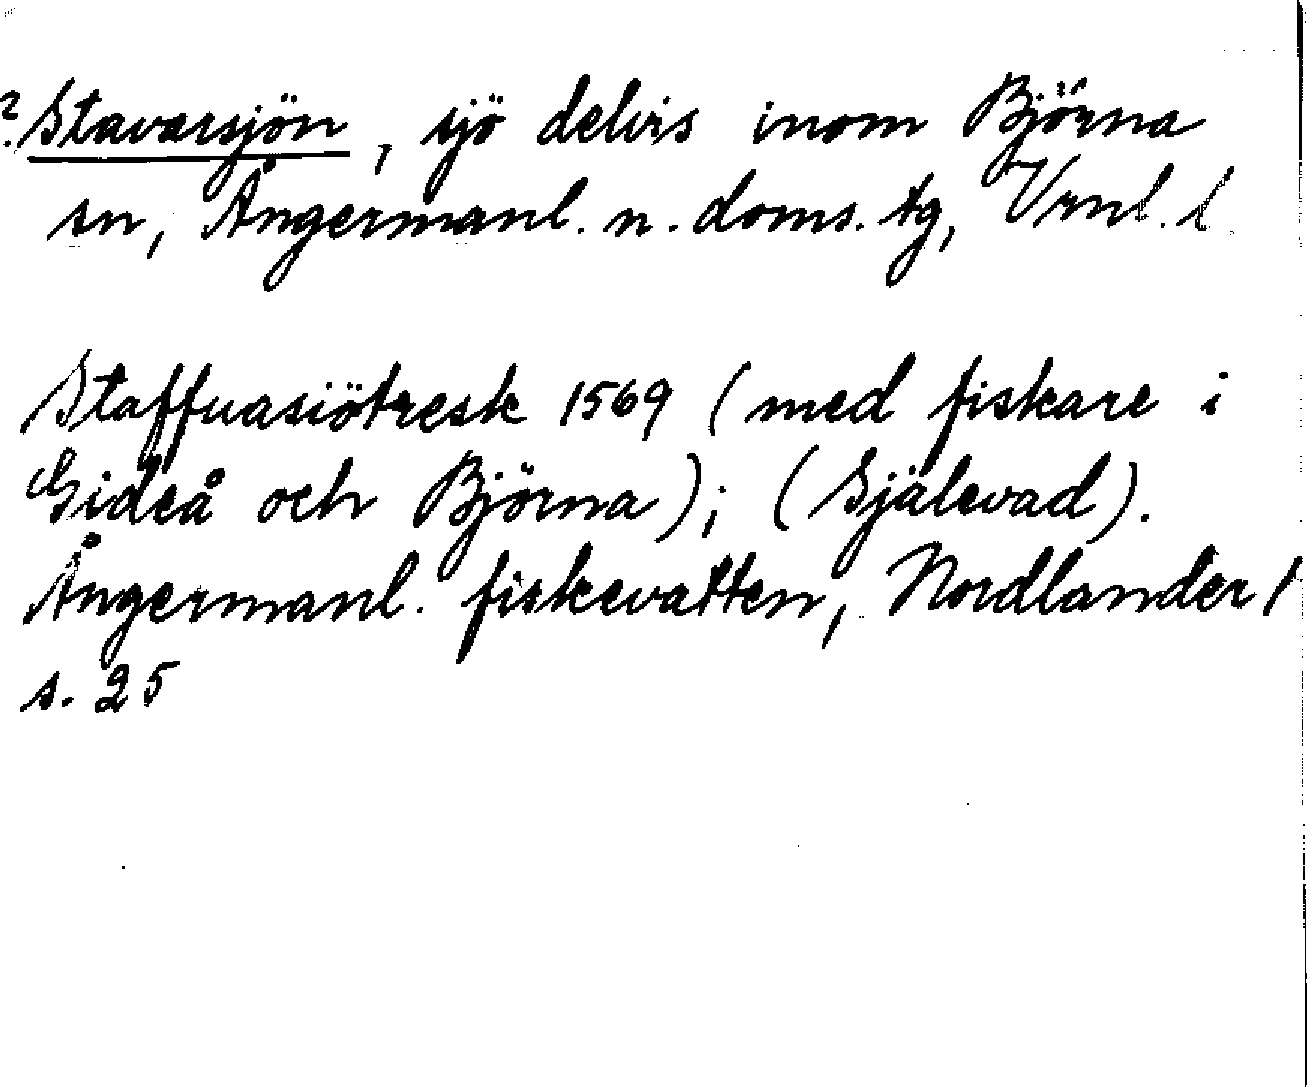 ? Stavarsjön, sjö delvis inom Björna
sn, Ångermanl. n. doms. tg, Vrnl. l
Staffuasiötresk 1569 (med fiskare i
Gideå och Björna); (Själevad).
Ångermanl. fiskevatten, Nordlander,
s. 25